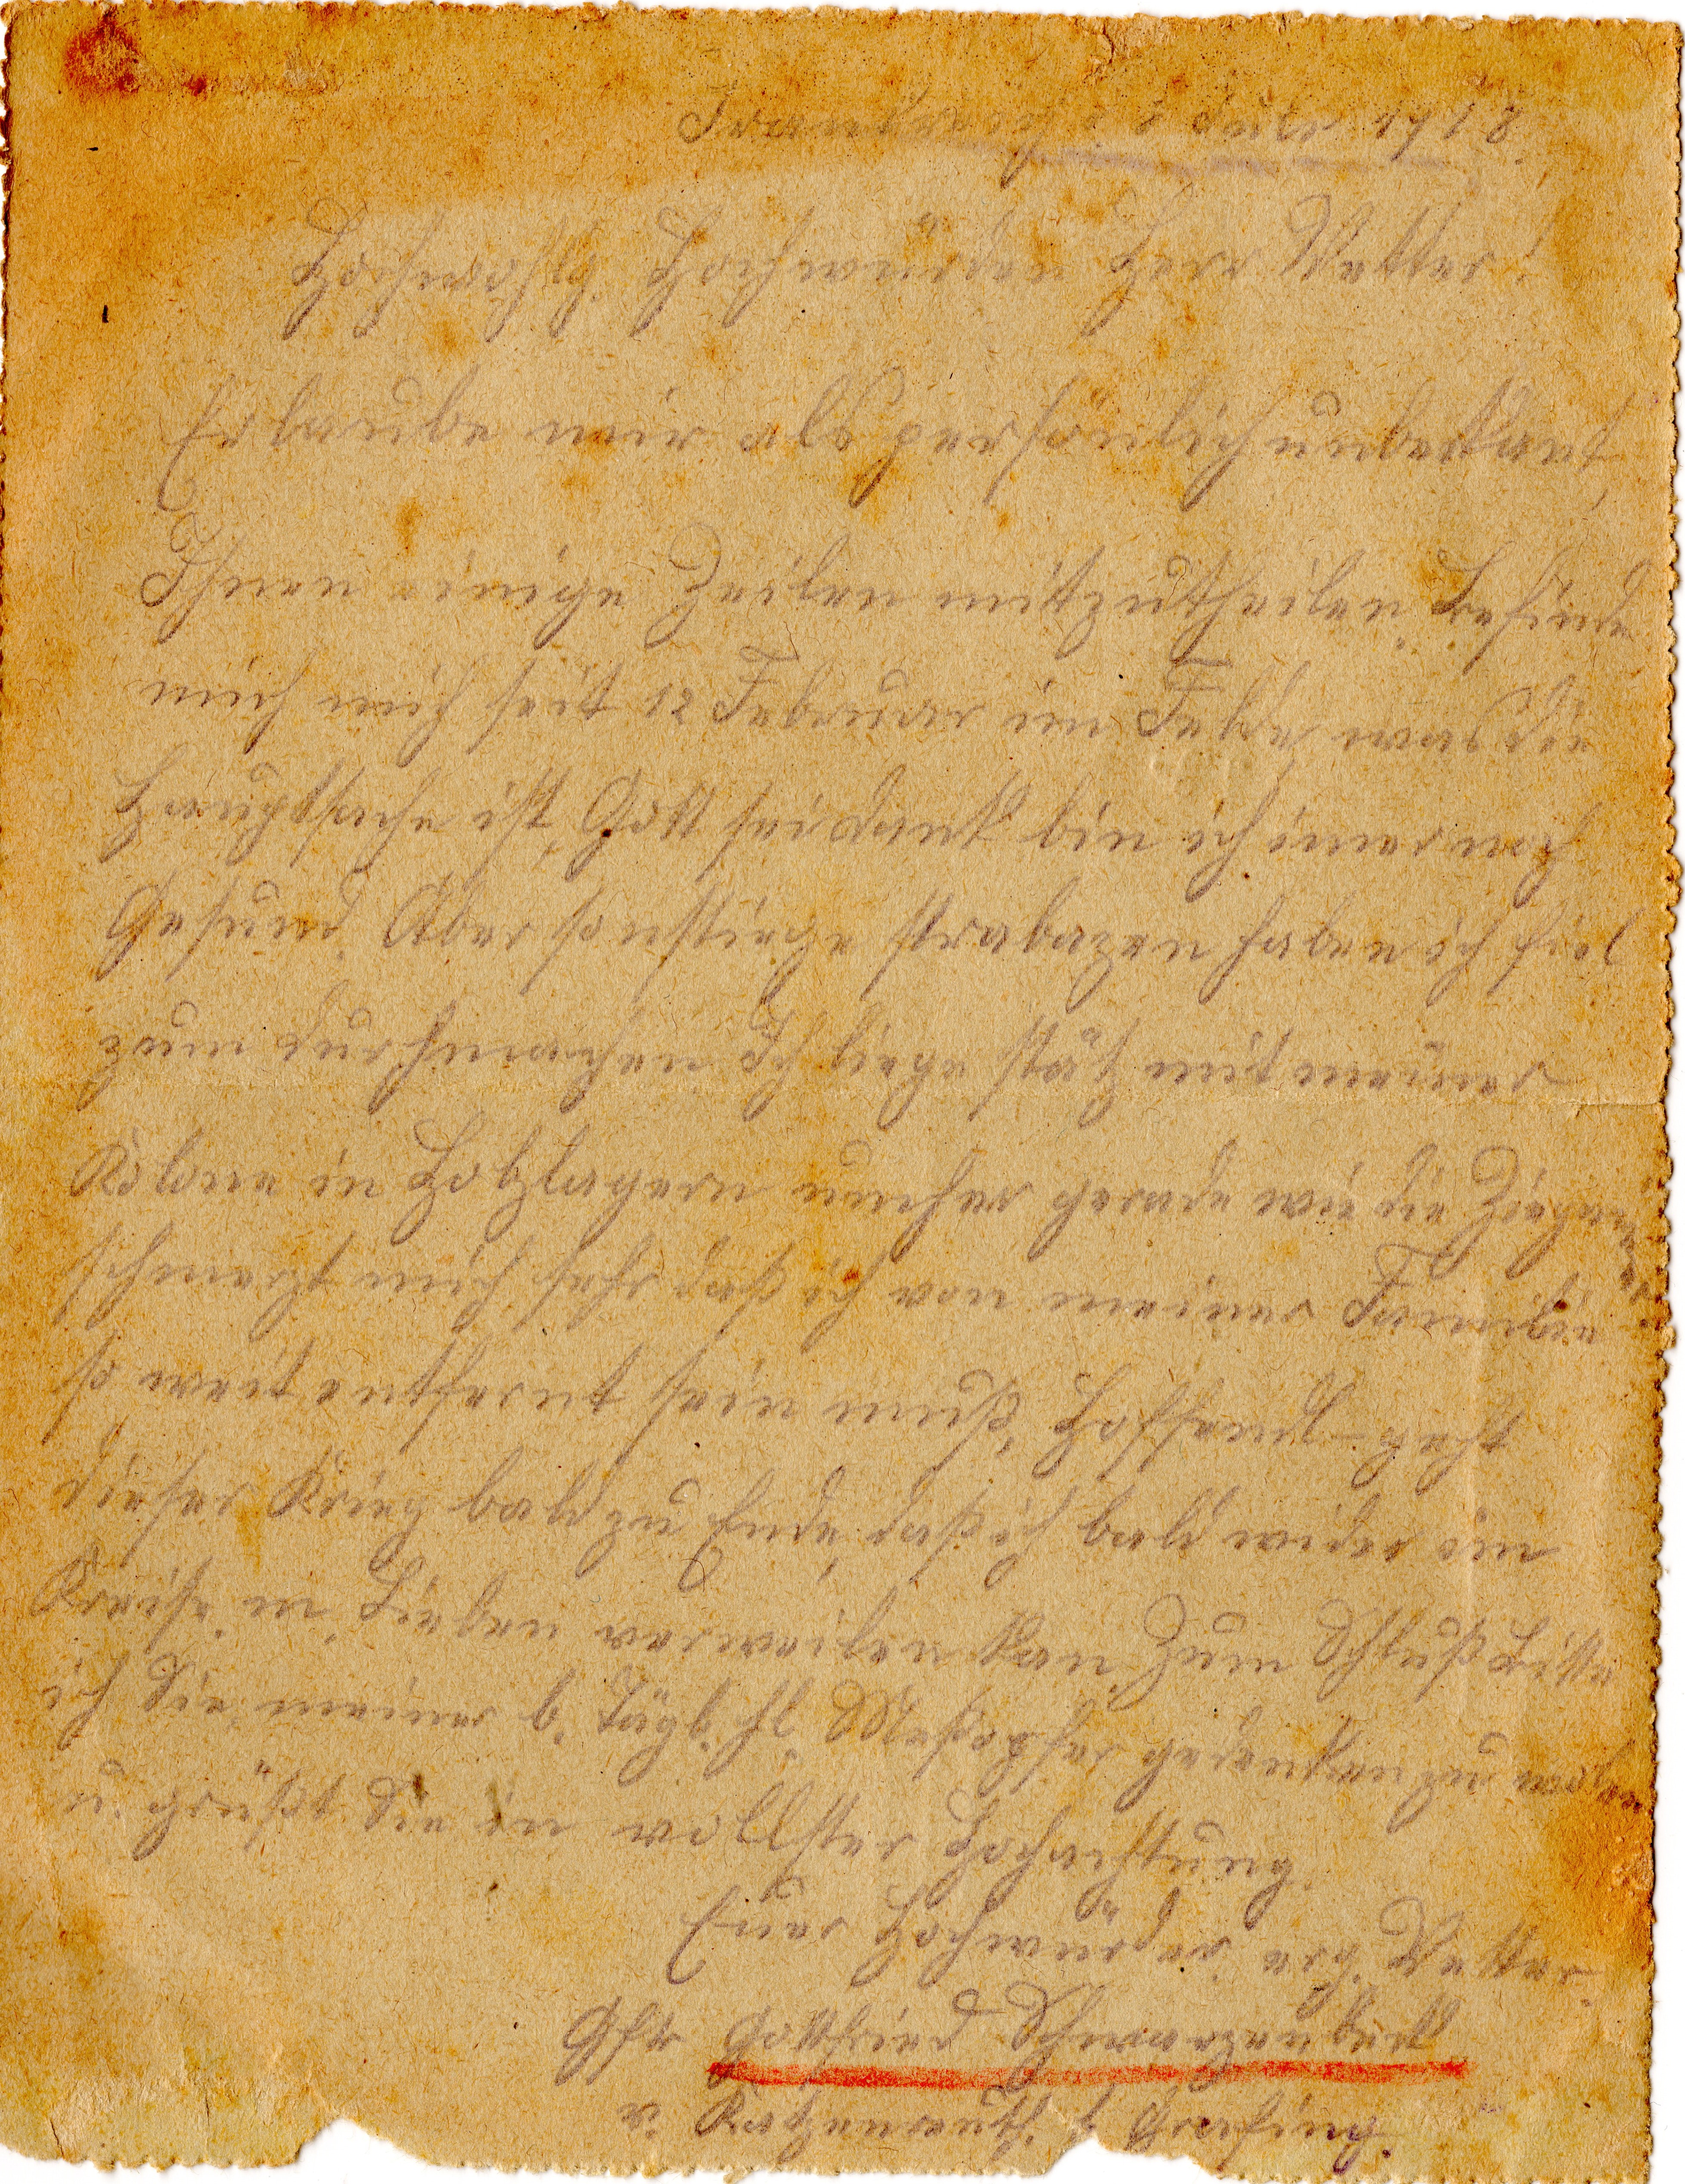 Frankreich d. 8 Juli 1918.
Hochwohlg. Hochwürden Herr Vetter!
Erlaube mir als persönlich unbekant,
Ihnen einige Zeilen mitzutheilen. Befinde
mich mich seit 12 Februar im Felde, was die
Hauptsache ist, Gott sei dank bin ich imer noch
Gesund. Aber sonstiege strabazen haben ich fiel
zum durchmachen Ich liege stätz mit meiner
Kolone in Holzlagern umher gerade wie die Ziegeuner
schmerzt mich sehr daß ich von meiner Familie
so weit entfernt sein muß, Hoffendl. geht
dieser Krieg bald zu Ende, daß ich bald wider im
Kreise m. Lieben verweilen kan. Zum Schluß Bitte
ich Sie, meiner b. tägl. hl. Meßopfer gedenken zu wolen
u. grüßt Sie in vollster Hochachtung.
Euer Hochwürden erg. Vetter.
Gfr Gottfried
v. b. Grafing.